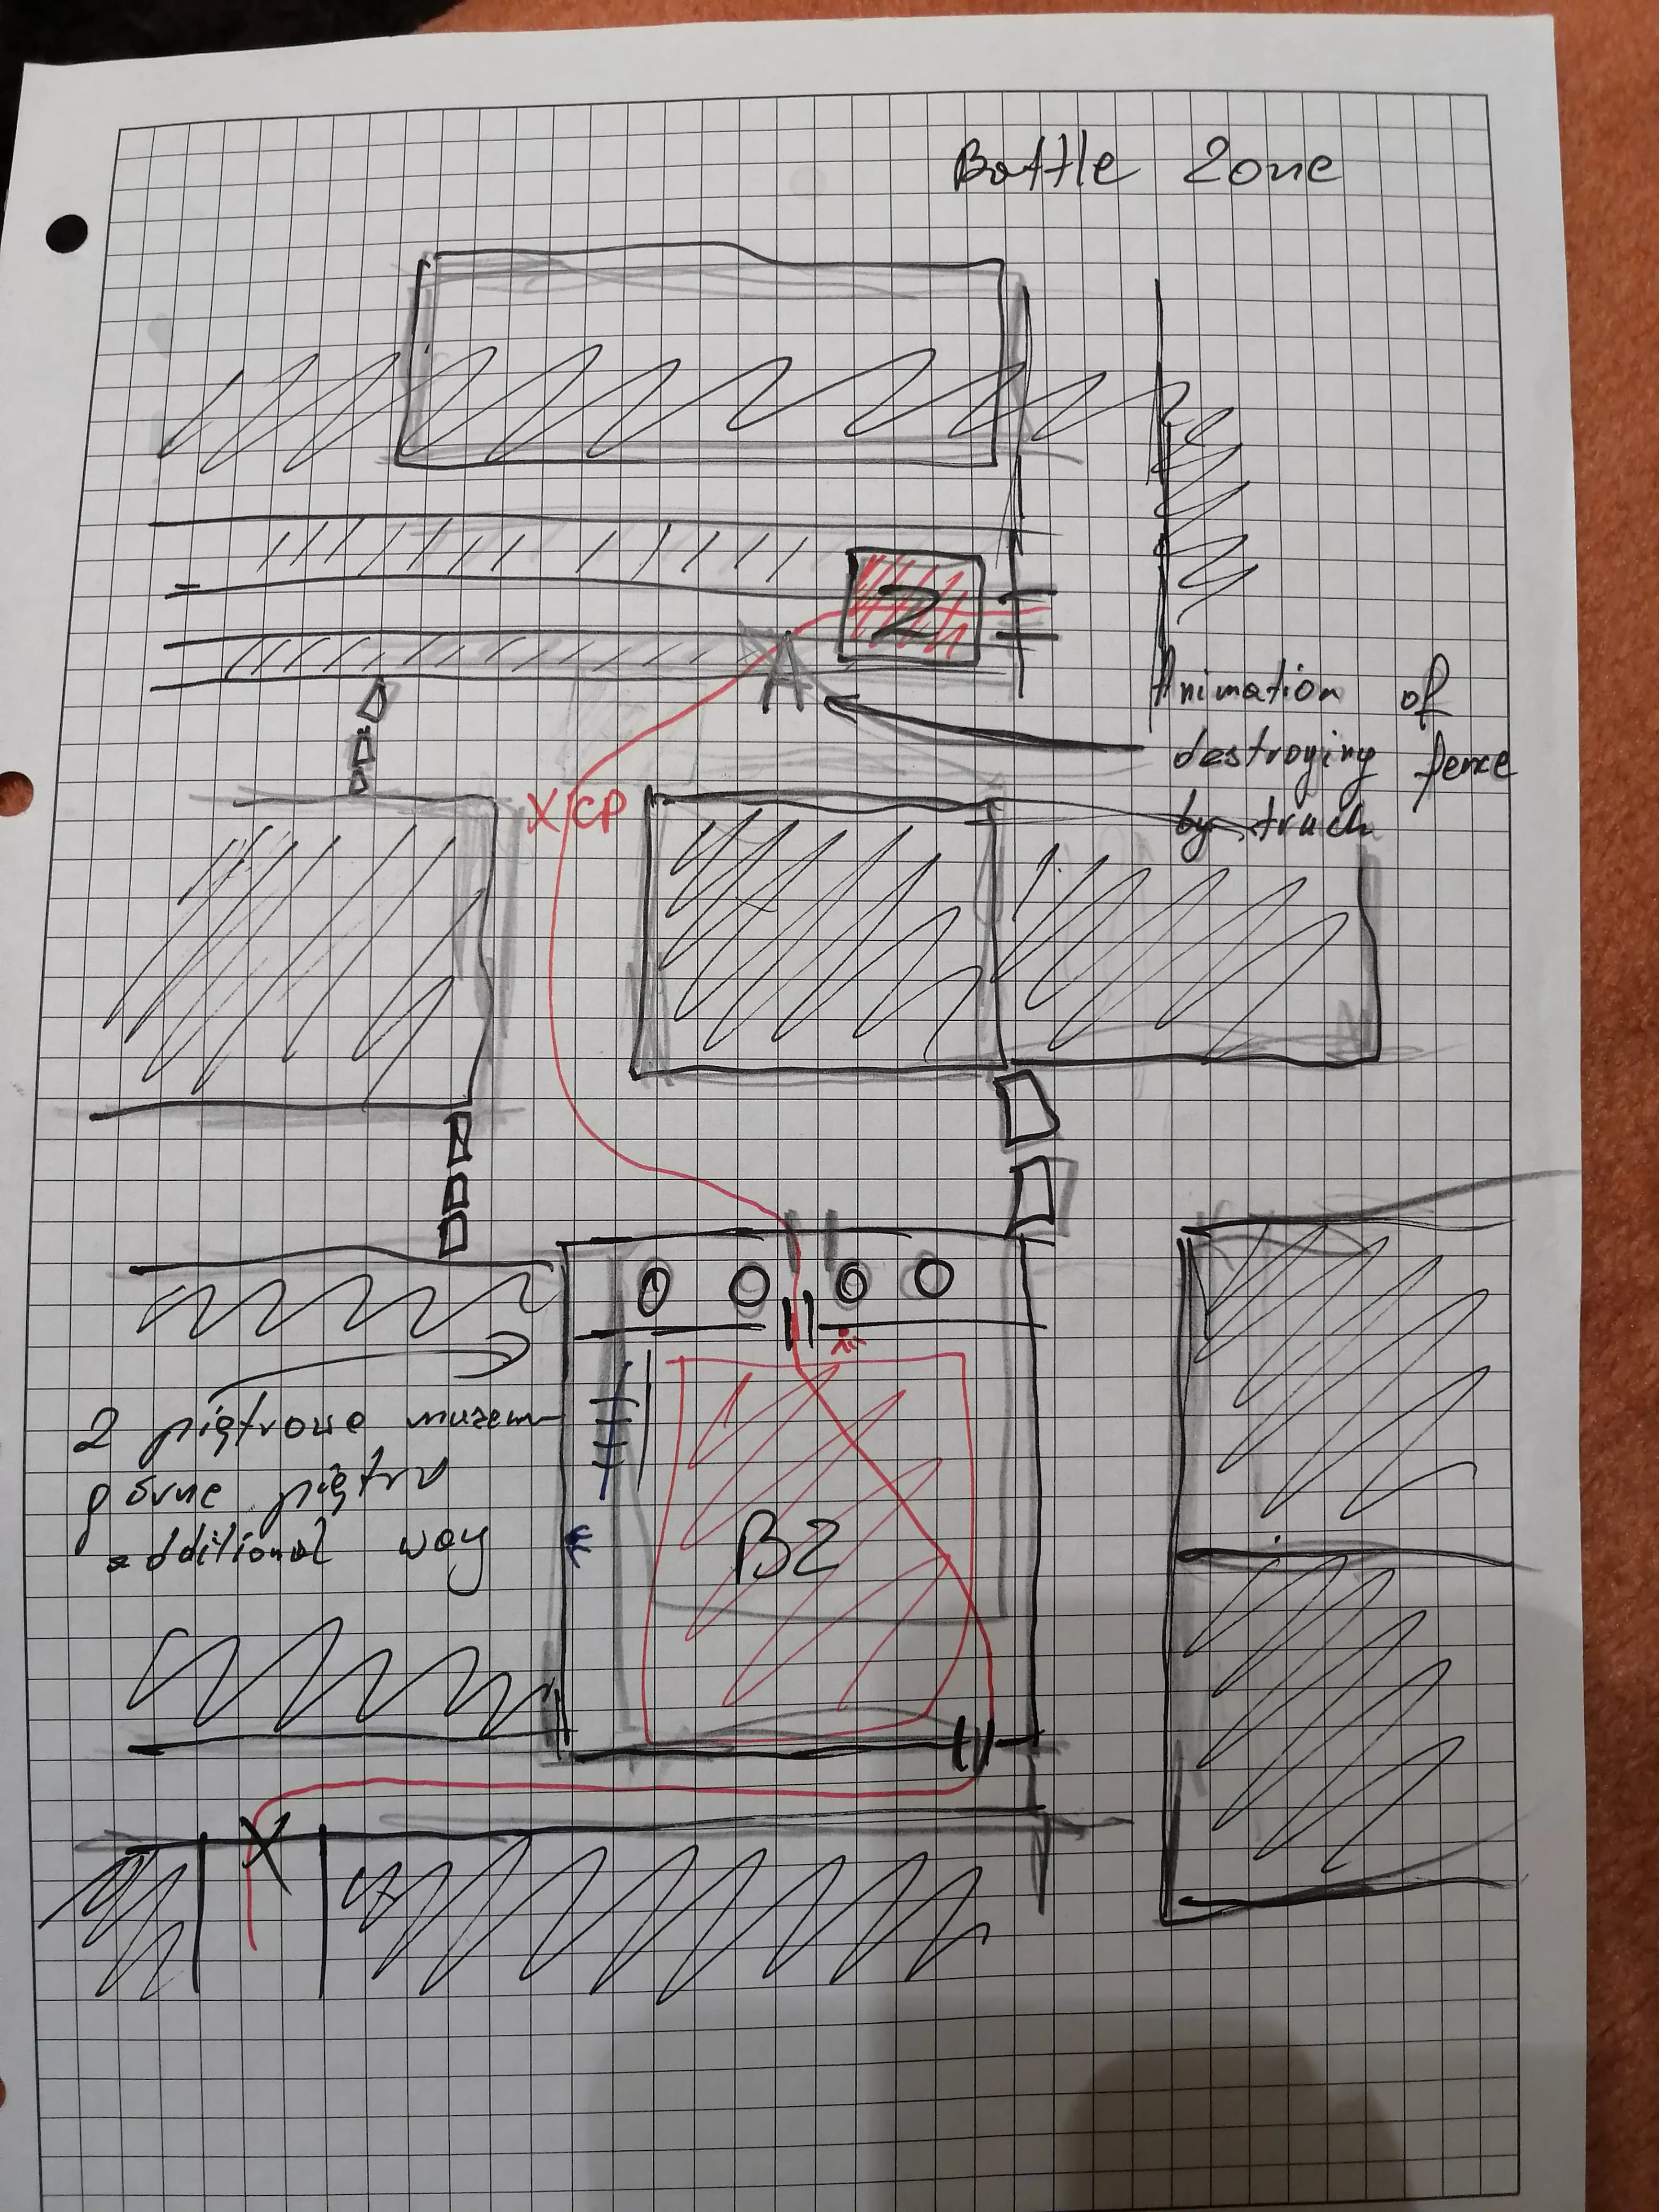 Battle Zone
2
A
Animation of
destroying fence
by truck
X CP
2 piętrowe muzeum
górne piętro
additional way
BZ
X